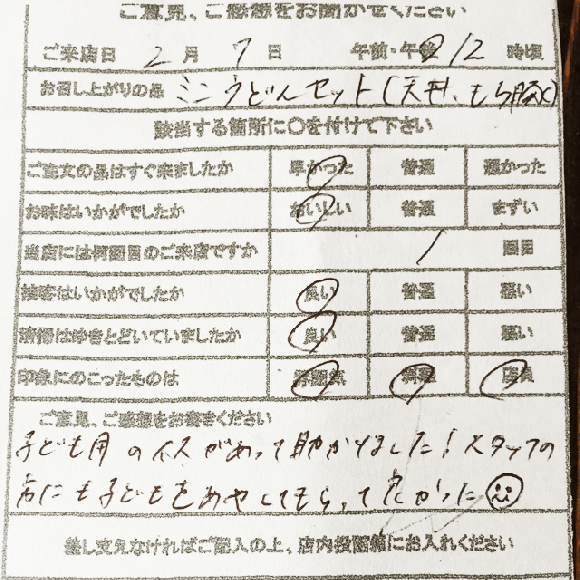 ご意見、ご感想をお聞かせください
ご来店日 2月7日 午前・午後 12時頃
お召し上がりの品 ミニうどんセット(天丼、もち豚
該当する箇所に〇を付けて下さい
ご注文の品はすぐ来ましたか 早かった 普通 遅かった
お味はいかがでしたか おいしい 普通 まずい
当店には何回目のご来店ですか 1 回目
接客はいかがでしたか 良い 普通 悪い
清掃はゆきとどいていましたか 良い 普通 悪い
印象にのこったものは 雰囲気 料理 店員
ご意見、ご感想をお書きください
子ども用のイスがあって助かりました!スタッフの
方にも子どもをあやしてもらって良かった
差し支えなければご記入の上、店内投函箱にお入れください